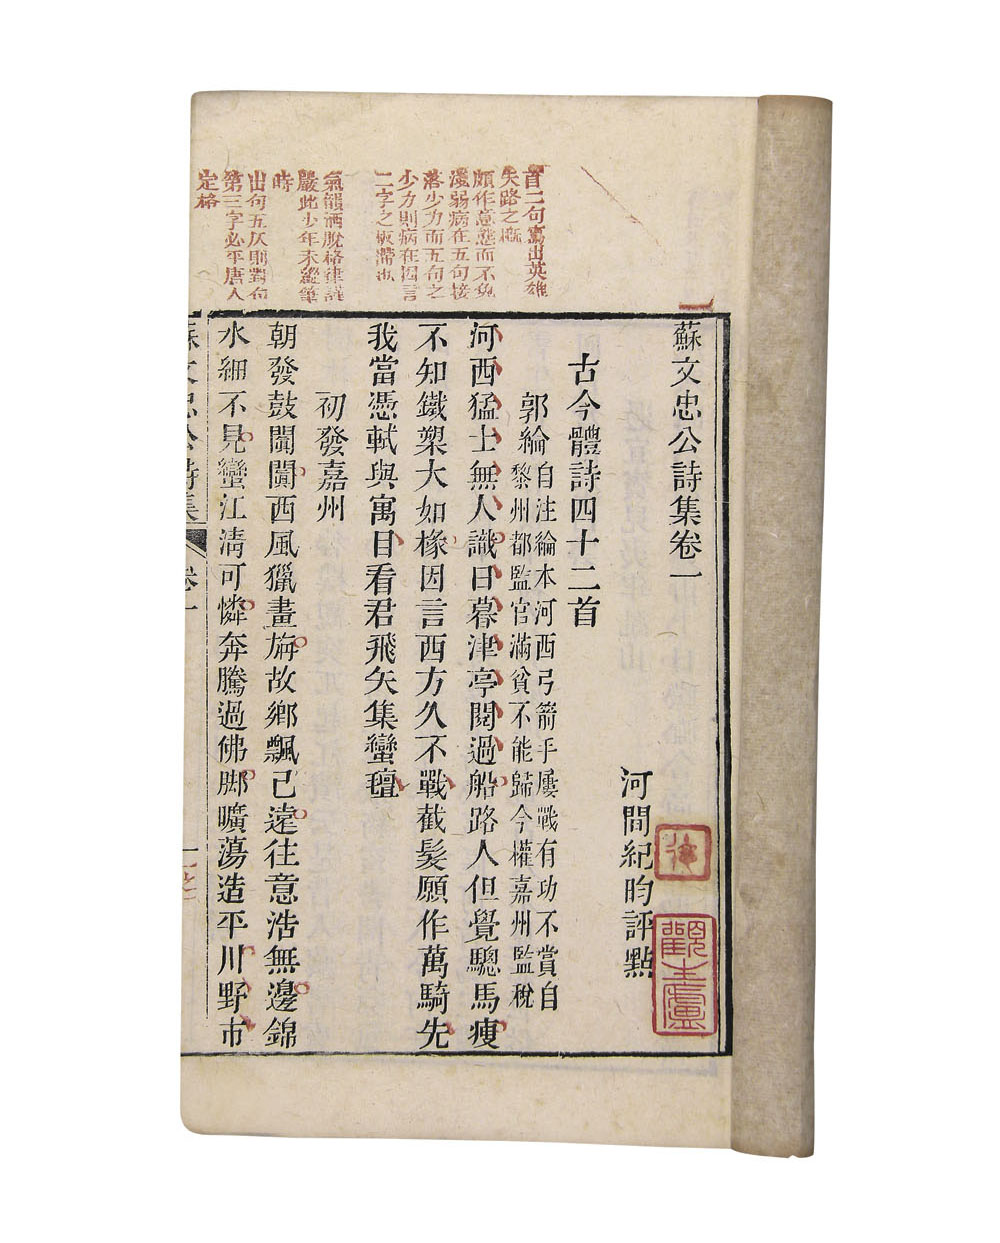 蘇文忠公詩集卷一
河間紀昀評點
古今體詩四十二首
郭綸
自注綸本河西弓箭手屢戰有功不賞自
黎州都監官滿貧不能歸今權嘉州監稅
河西猛士無人識日暮津亭閱過船路人但覺驄馬瘦
不知鐵槊大如椽因言西方久不戰截髮願作萬騎先
我當憑軾與寓目看君飛矢集蠻氊
初發嘉州
朝發鼓闐闐西風獵畫旃故鄉飄已遠往意浩無邊錦
水細不見蠻江清可憐奔騰過佛腳曠蕩造平川野市
首二句寫出英雄
失路之慨
頗作意態而不免
淺弱病在五句接
落少力而五句之
少力則病在因言
二字之板滯也
氣韻洒脫格律謹
嚴此少年未縱筆
時
出句五仄則對句
第三字必平唐人
定格
蘇文忠公詩集
卷一
一